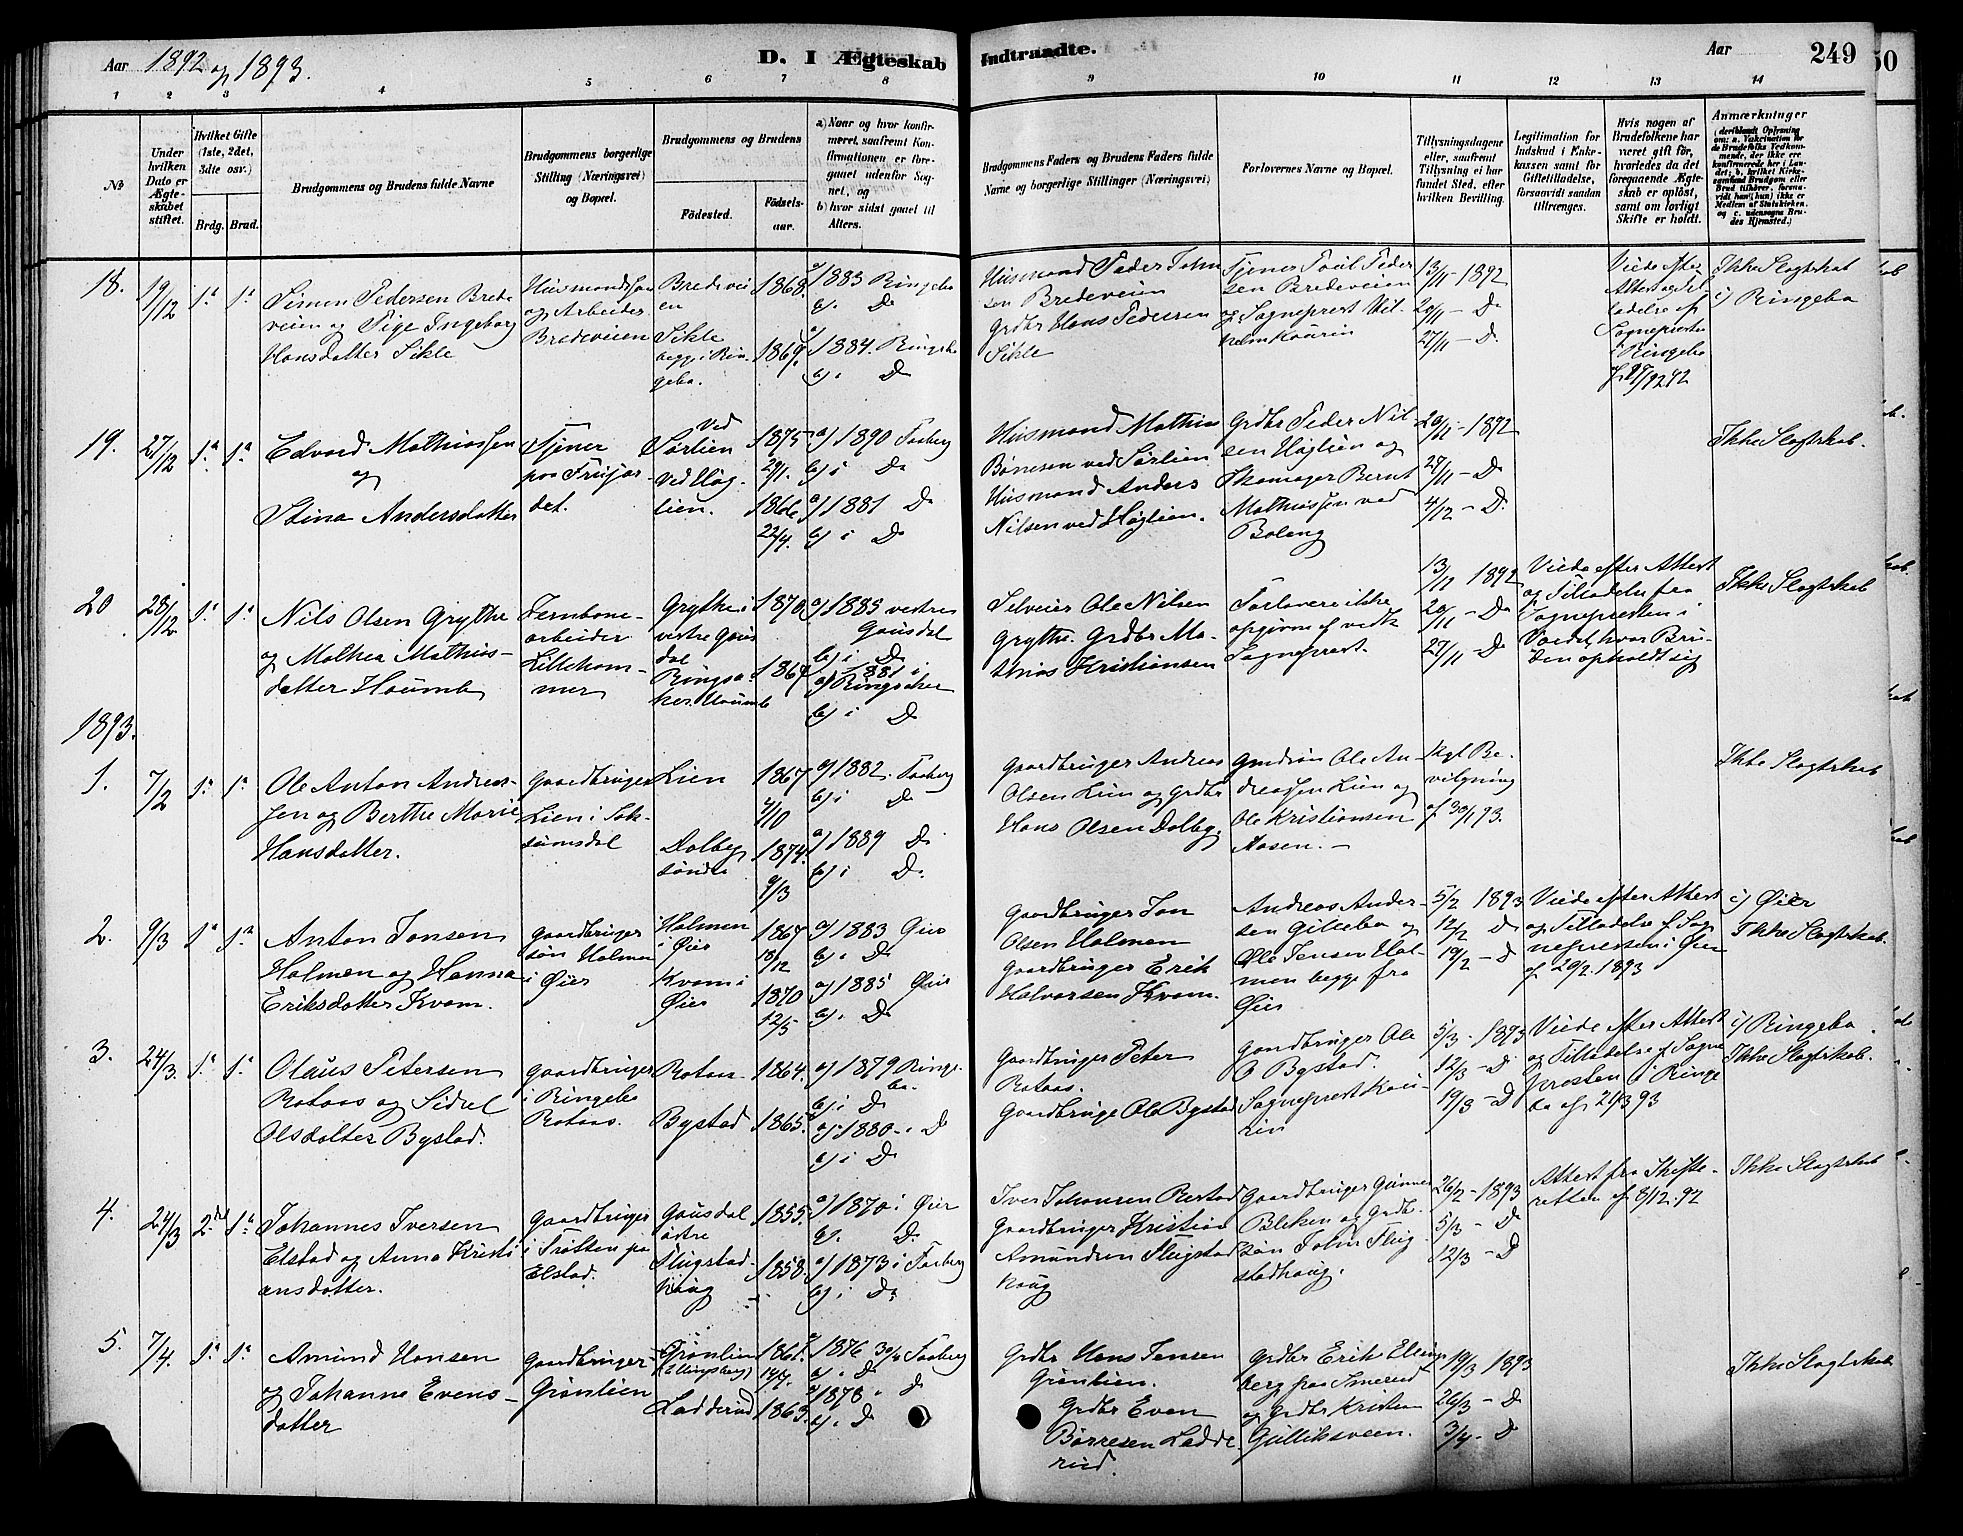 Aar 1892 og 1893.
D. I Ægteskab Indtraadte.
Aar
249
50
1 2 3 4 5 6 7 8 9 10 11 12 13 14
№
Under hvilken Dato er Ægteskabet stiftet.
Hvilket Gifte (1ste, 2det, 3dte osv.)
Brdg. Brud.
Brudgommens og Brudens fulde Navne
Brudgommens borgerlige Stilling (Næringsvei) og Bopæl.
Brudgommens og Brudens
Födested.
Födselsaar.
a) Naar og hvor konfirmeret, saafremt Konfirmationen er foregaaet udenfor Sognet, og
b) hvor sidst gaaet til Alters.
Brudgommens Faders og Brudens Faders fulde Navne og borgerlige Stillinger (Næringsvei)
Forlovernes Navne og Bopæl.
Tillysningsdagene eller, saafremt Tillysning ei har fundet Sted, efter hvilken Bevilling.
Legitimation for Indskud i Enkekassen samt for Giftetilladelse, forsaavidt saadan tiltrænges.
Hvis nogen af Brudefolkene har været gift før, hvorledes da det foregaaende Ægteskab er opløst, samt om lovligt Skifte er holdt.
Anmærkninger
18. 19/12 1ste 1ste
Simen Pedersen Bredeveien og Pige Ingeborg Hansdatter Sikle
Husmandssøn og Arbeider Bredeveien
Bredeveien
Sikle begge i Ringebo.
1868. 1869.
a) 1883 Ringebo
b) i Do
a) 1884. Ringebo
b) i Do
Husmand Peder Johnsen Bredeveien
Grdbr Hans Pedersen Sikle
Tjener Poul Pedersen Bredeveien og Sogneprest Vilhelm Kaurin
13/11 - 1892
20/11 - Do
27/11 - Do
Viede efter Attest og Tilladelse af Sognepresten i Ringebo
Ikke Slagtskab
c) Ringebo
19. 27/12 1ste 1ste
Edvard Mathiassen
og
Stina Andersdatter
Tjener paa Frisgaardet.
ved Sørlien
ved Høglien.
1875 29/1.
1866 22/4.
a) 1890 Faaberg
b) i Do
a) 1881 Do
b) i Do
Husmand Mathias Bønesen ved Sørlien
Husmand Anders Nilsen ved Høglien.
Grdbr Peder Nilsen Høglien og Skomager Bernt Mathiassen ved Boleng
20/11 - 1892
27/11 - Do
4/12 - Do
Ikke Slagtskab.
20 28/12 1ste 1ste
Nils Olsen Grythe og Mathea Mathiasdatter Haumb
Jernbanearbeider Lillehammer
Grythe i vestre Gausdal
Ringsaker. Haumb
1870. 1867
a) 1885 vestre Gausdal
b) i Do
a) 1881 i Ringsaker
b) i Do
Selveier Ole Nilsen Grythe. Grdbr Mathias Kristiansen
Forlovere ikke opgivne af vedk Sogneprest.
13/11 1892
20/11 - Do
27/11 - Do
Viede efter Attest og Tilladelse fra Sognepresten i Vardal, hvor Bruden opholdt sig
Ikke Slagtskab
1893.
1. 7/2 1ste 1ste
Ole Anton Andreassen og Berthe Marie Hansdatter.
Gaardbruger Lien i Saksumsdal
Lien
Dolbey søndre
1867 4/10
1874. 9/3
a) 1882. Faaberg
b) i Do
a) 1889 Do
b) i Do.
Gaardbruger Andreas Olsen Lien og Grdbr Hans Olsen Dolbey.
Grdmän Ole Andreassen Lien og Ole Kristiansen Aasen. —
Kgl Bevilgning af 30/1 93.
Ikke Slagtskab
2. 9/3 1ste 1ste
Anton Jonsen Holmen og Hanna Eriksdatter Kvam.
Gaardbrugersøn Holmen i Øier
Holmen i Øier
Kvam i Øier
1867 18/12
1870 12/5
a) 1883 Øier
b) i Do
a) 1885 Øier
b) i Do
Gaardbruger Jon Olsen Holmen
Gaardbruger Erik Halvorsen Kvam.
Andreas Andersen Gillebo og Ole Jensen Holmen begge fra Øier
5/2 1893
12/2 Do
19/2 - Do
Viede efter Attest og Tilladelse af Sognepresten i Øier af 20/2 1893
c) Øier
Ikke Slagtskab.
3. 24/3. 1ste 1ste
Olaus Petersen Rotaas og Sidsel Olsdatter Bystad.
Gaardbruger i Ringebo Rotaas.
Rotaas.
Bystad
1864. 1865.
a) 1879 Ringebo.
b) i Do
a) 1880 - i Do
b) i Do
Gaardbruger Peter Rotaas.
Gaardbruge Ole Bystad
Gaardbruger Ole O Bystad.
Sogneprest Kaurin
5/3 - 1893
12/3 - Do
19/3 - Do
Viede efter Attest og Tilladelse af Sognepresten i Ringebo af 21/3 93
c) Ringebo
Ikke Slagtskab.
4. 24/3 2det 1ste
Johannes Iversen Elstad og Anna Kristiansdatter.
Gaardbruger i Tretten paa Elstad.
Gausdal østre
Flugstadhaug
1855. 1858.
a) 1870 i Øier
b) Do
a) 1873 i Faaberg
b) i Do
Iver Johansen Restad
Gaardbruger Kristian Amundsen Flugstadhaug
Gaardbruger Gunner Bleken og Grdbr. søn John Flugstadhaug.
26/2 - 1893
5/3 - Do
12/3 - Do
Attest fra Skifteretten af 8/12. 92
Ikke Slagtskab
5. 7/4. 1ste 1ste
Amund Hansen og Johanne Evensdatter
Gaardbruger Grønlien
Grønlien (Ellingsberg)
Ladderud
1861. 14/7.
1863.
a) 1876 30/4 Faaberg
b) i Do
a) 1878 i Do
b) i Do
Grdbr Hans Jensen Grønlien.
Grdbr Even Børresen Ladderud.
Grdbr Erik Ellingsberg paa Smerud og Grdbr Kristian Gulliksveen.
19/3 1893
26/3 - Do
3/4 - Do
Ikke Slagtskab